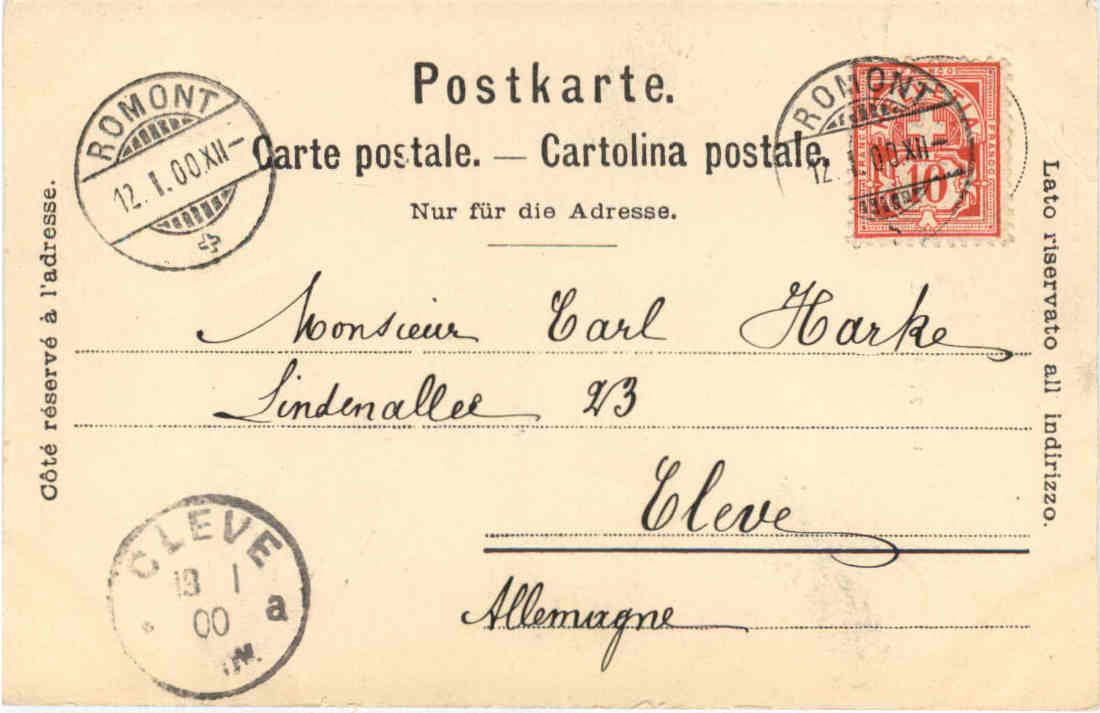 Postkarte.
Carte postale. — Cartolina postale.
Nur für die Adresse.
ROMONT
12. I. 00. XII —
ROMONT
12. I. 00. XII —
FRANCO
10
Côté réservé à l'adresse.
Lato riservato all indirizzo.
Monsieur Carl Harke
Lindenallee 23
Cleve
Allemagne
CLEVE
13 1
00
a